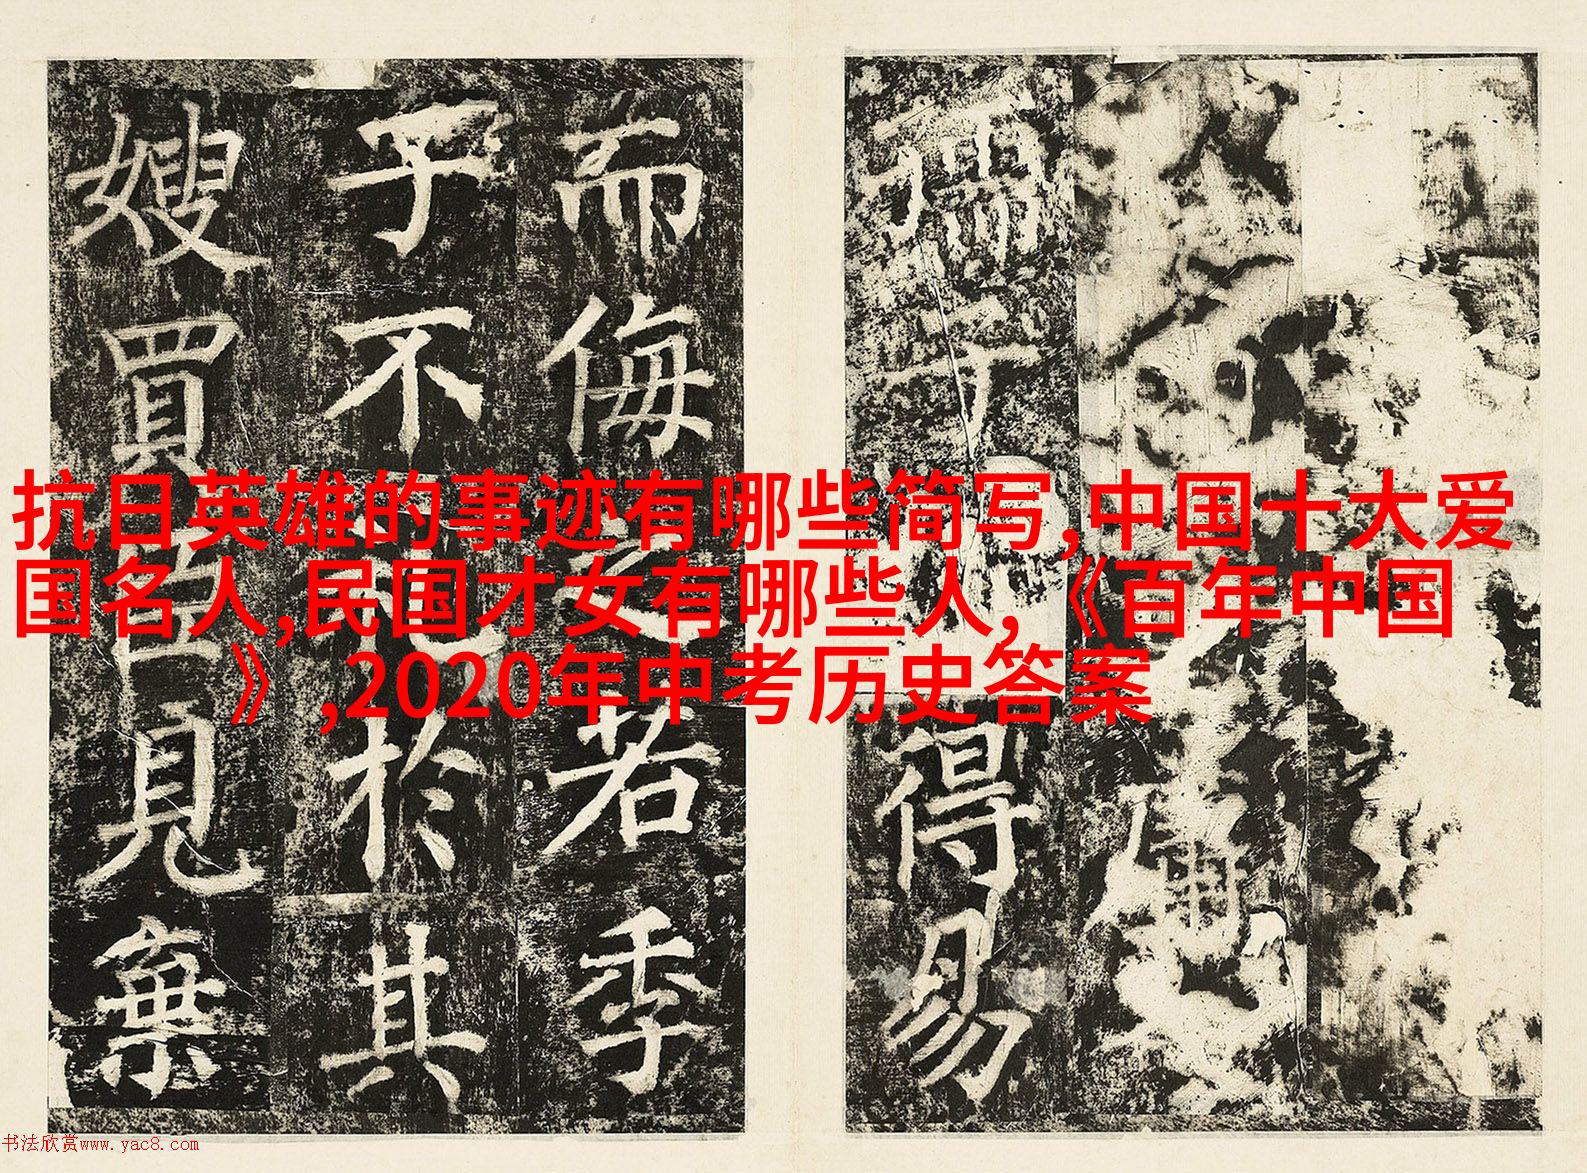 得易
而侮之若季
子不於其
嫂買臣見棄
抗日英雄的事迹有哪些简写,中国十大爱
国名人,民国才女有哪些人,《百年中国
》,2020年中考历史答案
书法欣赏www.yac8.com